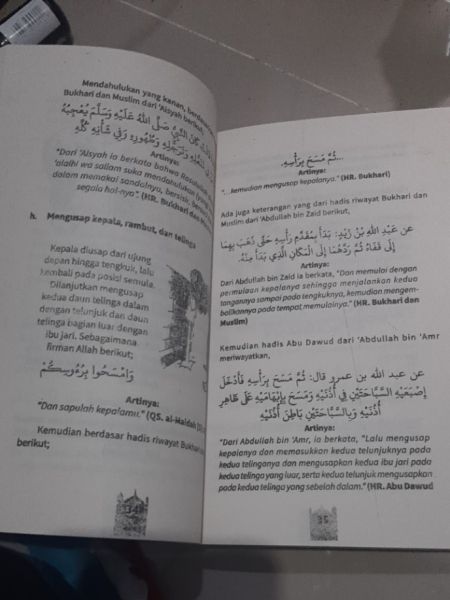 Mendahulukan yang kanan, berdasar
Bukhari dan Muslim dari 'Aisyah berikut,
كَانَ النَّبِيُّ صَلَّى اللهُ عَلَيْهِ وَسَلَّمَ يُعْجِبُهُ
وَتَرَجُّلِهِ وَطُهُورِهِ وَفِي شَأْنِهِ كُلِّهِ
Artinya:
"Dari 'Aisyah io berkata bahwa
'alaihi wa sallam suka mendahulukan
dalam memakai sandalnya, bersisir,
segala hal-nya". (HR. Bukhari dan
h. Mengusap kepala, rambut, dan telinga
Kepala diusap dari ujung
depan hingga tengkuk, lalu
kembali pada posisi semula.
Dilanjutkan mengusap
kedua daun telinga dalam
dengan telunjuk dan daun
telinga bagian luar dengan
ibu jari. Sebagaimana
firman Allah berikut;
وَامْسَحُوا بِرُءُوسِكُمْ
Artinya:
"Dan sapulah kepalamu." (QS. al-Maidah
Kemudian berdasar hadis riwayat Bukhari
berikut;
34
...ثُمَّ مَسَحَ بِرَأْسِهِ
Artinya:
"...kemudian mengusap kepalanya." (HR. Bukhari)
Ada juga keterangan yang dari hadis riwayat Bukhari dan
Muslim dari 'Abdullah bin Zaid berikut,
عن عبد الله بْنِ زَيْدٍ: بَدَأَ بِمُقَدَّمِ رَأْسِهِ حَتَّى ذَهَبَ بِهِمَا
إِلَى قَفَاهُ ثُمَّ رَدَّهُمَا إِلَى الْمَكَانِ الَّذِي بَدَأَ مِنْهُ.
Artinya:
Dari Abdullah bin Zaid ia berkata, "Dan memulai dengan
permulaan kepalanya sehingga menjalankan kedua
tangannya sampai pada tengkuknya, kemudian mengem-
balikannya pada tempat memulainya." (HR. Bukhari dan
Muslim)
Kemudian hadis Abu Dawud dari 'Abdullah bin 'Amr
meriwayatkan,
عن عبد الله بن عمرو قال: ثُمَّ مَسَحَ بِرَأْسِهِ فَأَدْخَلَ
إِصْبَعَيْهِ السَّبَّاحَتَيْنِ فِي أُذُنَيْهِ وَمَسَحَ بِإِبْهَامَيْهِ عَلَى ظَاهِرِ
أُذُنَيْهِ وَبِالسَّبَّاحَتَيْنِ بَاطِنَ أُذُنَيْهِ
Artinya:
"Dari Abdullah bin 'Amr, ia berkata, "Lalu mengusap
kepalanya dan memasukkan kedua telunjuknya pada
kedua telinganya dan mengusapkan kedua ibu jari pada
kedua telinga yang luar, serta kedua telunjuk mengusapkan
pada kedua telinga yang sebelah dalam." (HR. Abu Dawud
35